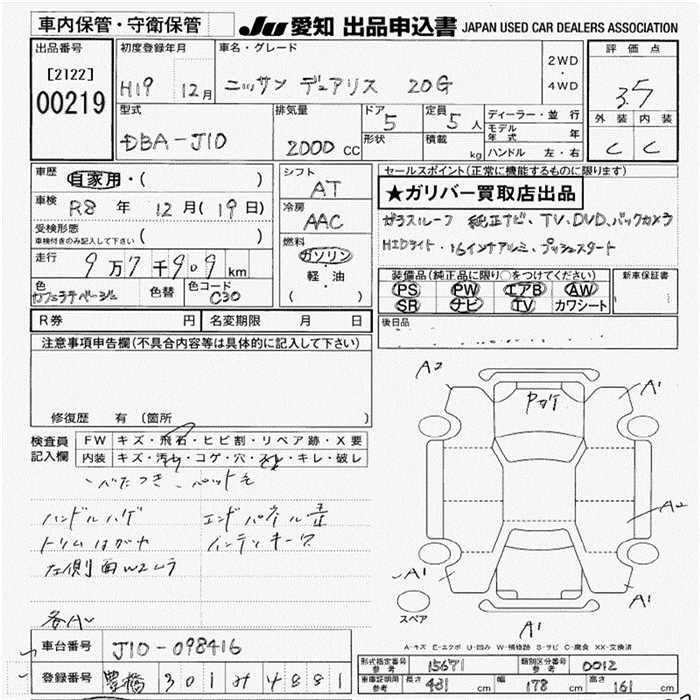 車内保管・守衛保管 JU 愛知 出品申込書 JAPAN USED CAR DEALERS ASSOCIATION
出品番号 [2122] 00219
初度登録年月 H19 12月
車名・グレード ニッサン デュアリス 20G
2WD ・ 4WD
評価点 3.5
外装 内装
C C
型式 DBA-J10
排気量 2000 CC
ドア 5
形状
定員 5 人
積載 kg
ディーラー・並行
モデル年式 年
ハンドル 左・右
車歴 自家用・( )
車検 R8 年 12月(19日)
受検形態
車検付きのみ記入して下さい ( )
走行 9万7千909 km
色 カフェラテベージュ 色替 色コード C30
シフト AT
冷房 AAC
燃料 ガソリン・軽・油 ( )
セールスポイント(正常に機能するものに限ります)
★ガリバー買取店出品
ガラスルーフ 純正ナビ、TV、DVD、バックカメラ
HIDライト・16インチアルミ、プッシュスタート
装備品(純正品に限り○をつけてください)
PS PW エアB AW
SR ナビ TV カワシート
新車保証書
後日品
R券 円 名変期限 月 日
注意事項申告欄(不具合内容等は具体的に記入して下さい)
修復歴 有 (箇所 )
検査員記入欄
FW キズ・飛石・ヒビ割・リペア跡・X要
内装 キズ・汚れ・コゲ・穴・スレ・キレ・破レ
ハンドルハゲ エンドパネル歪
左側面W2ムラ
各A
A2 A1
A2
A1 A1
スペア A1
A・キズ E・エクボ U・凹み W・補修跡 S・サビ C・腐食 XX・交換済
車台番号 J10-098416
登録番号 豊橋 301 み 4881
型式指定番号 参考 15671 類別区分番号 参考 0012
車検証用 参考 長さ 431 cm 幅 178 cm 高さ 161 cm